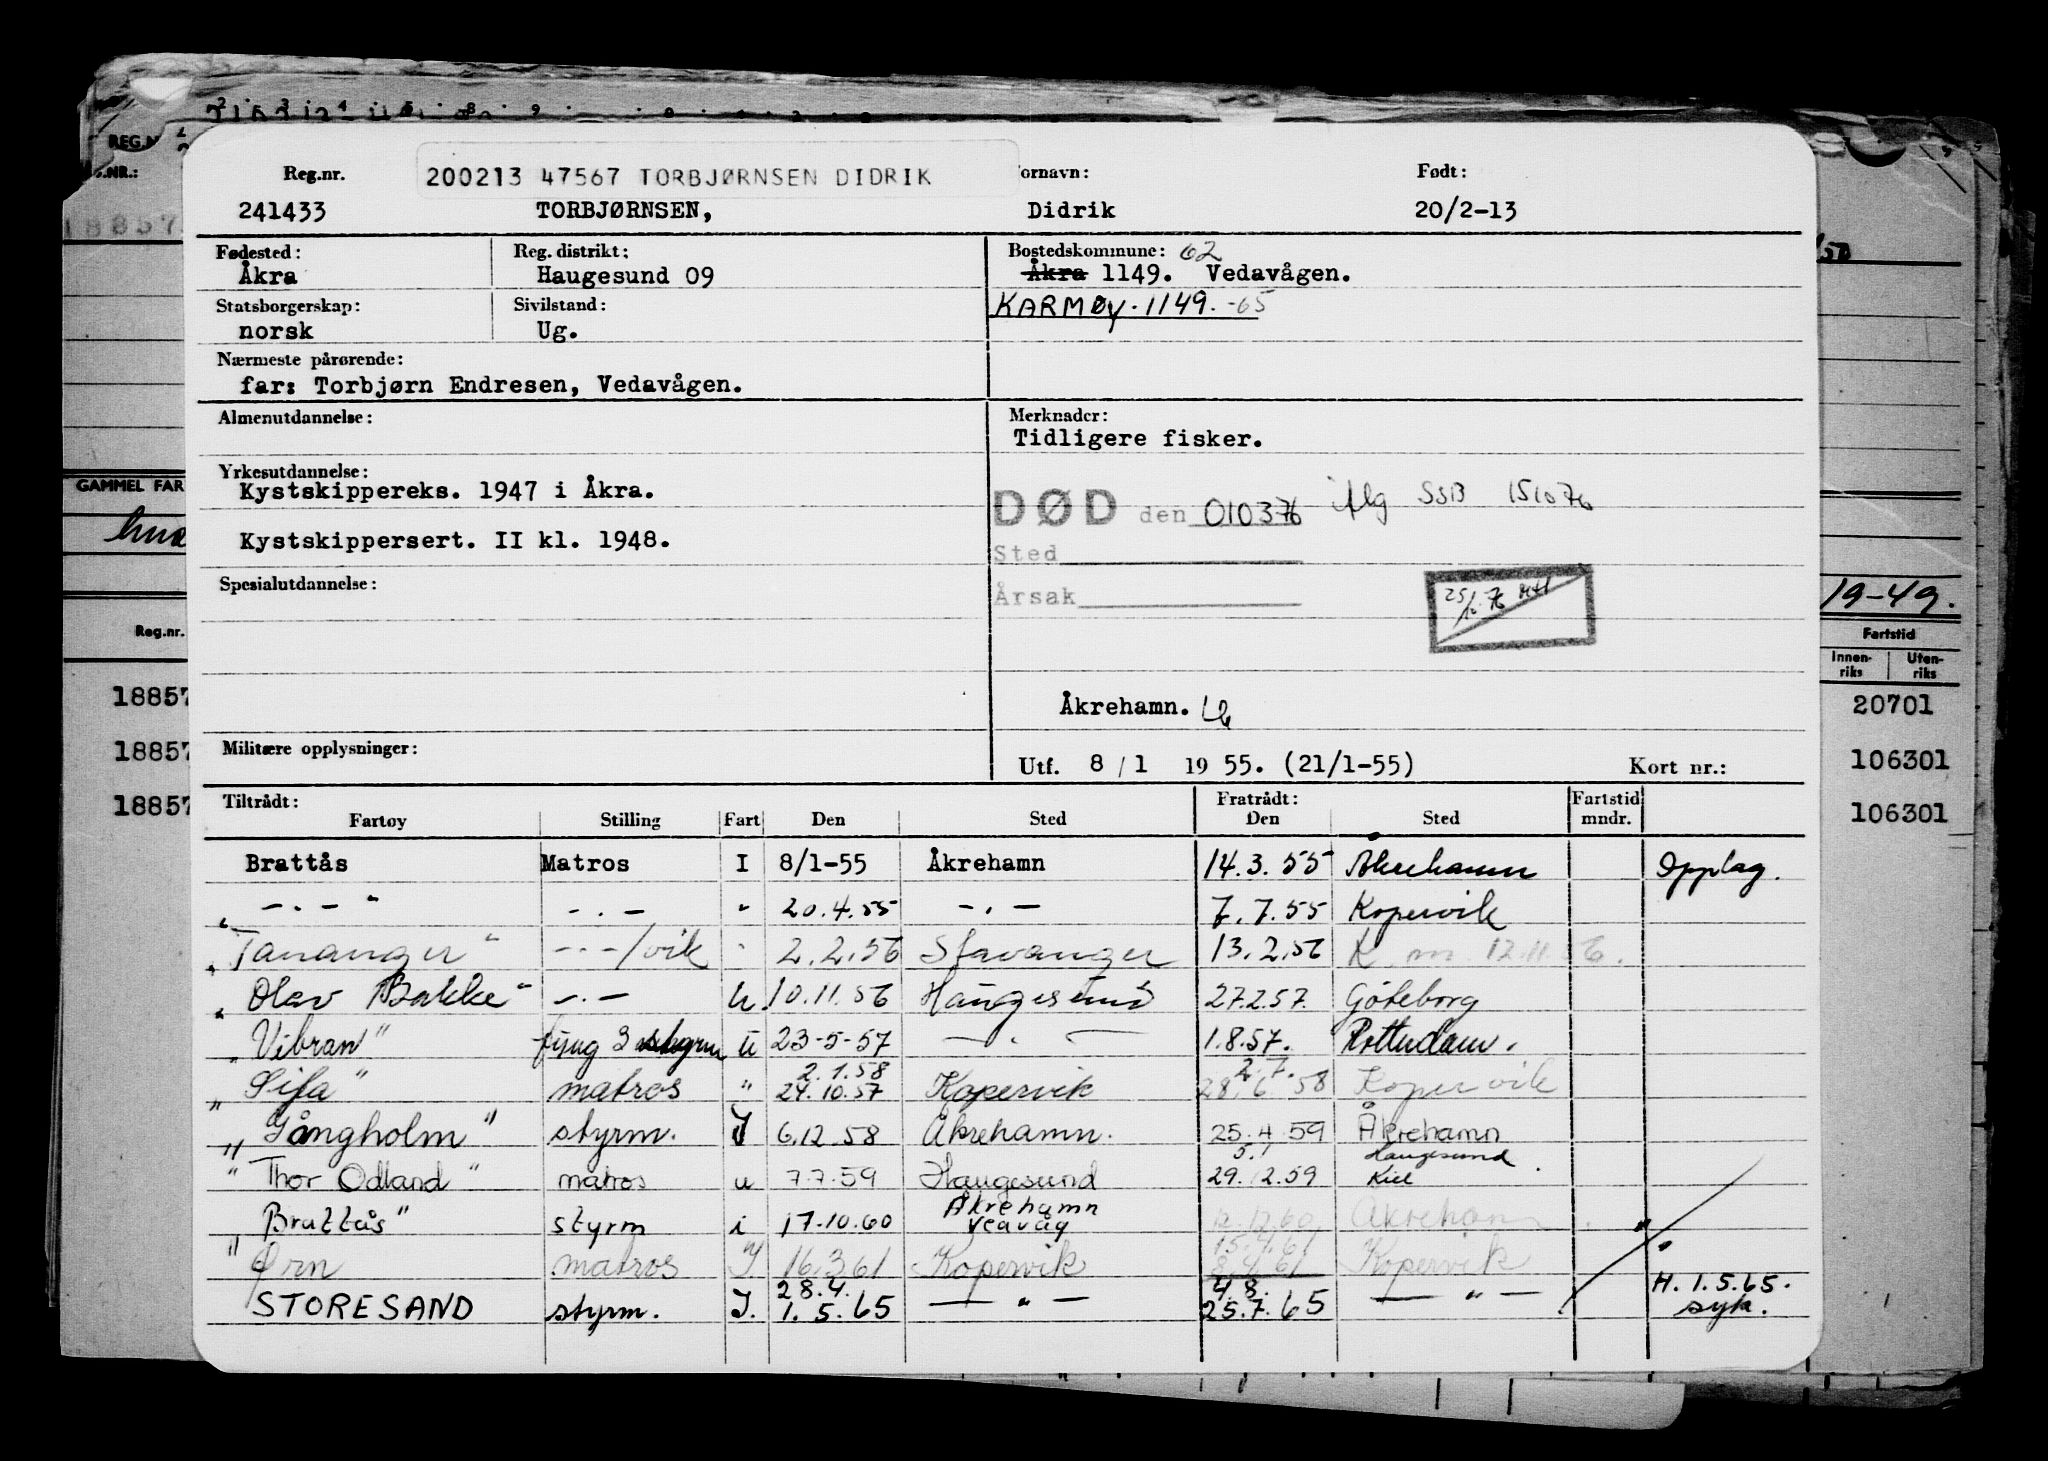 REG.N
Reg.nr. 200213 47567 TORBJØRNSEN DIDRIK ornavn: Født:
241433 TORBJØRNSEN, Didrik 20/2-13
Fødested: Reg. distrikt: Bostedskommune: 62
Åkra Haugesund 09 Åkra 1149. Vedavågen.
Statsborgerskap: Sivilstand: KARMØY. 1149. -65
norsk Ug.
Nærmeste pårørende:
far: Torbjørn Endresen, Vedavågen.
Almenutdannelse: Merknader:
Tidligere fisker.
Yrkesutdannelse:
Kystskippereks. 1947 i Åkra.
DØD den 010376 iflg SSB 151076
Kystskippersert. II kl. 1948.
Sted
Spesialutdannelse:
Årsak
Åkrehamn.
Militære opplysninger:
Utf. 8/1 1955. (21/1-55) Kort nr.:
Tiltrådt: Fratrådt: Fartstid
Fartøy Stilling Fart Den Sted Den Sted mndr.
Brattås Matros I 8/1-55 Åkrehamn 14.3.55 Åkrehamn Opplag.
" — . — " — . — " 20.4.55 — . — 7.7.55 Kopervik
"Tananger" — . — /vik " 2.2.56 Stavanger 13.2.56 K. m. 12.11.56.
"Olav Bakke" — . — U. 10.11.56 Haugesund 27.2.57. Göteborg
"Vibran" fung 3 styrm u 23-5-57 — . — 1.8.57. Rotterdam.
2.1.58 2.7.
"Sifa" matros " 24.10.57 Kopervik 28.6.58 Kopervik
"Gångholm" styrm. I 6.12.58 Åkrehamn. 25.4.59 Åkrehamn
5.1 Haugesund
"Thor Odland" matros u 7.7.59 Haugesund 29.12.59 Kiel
Åkrehamn
"Brattås" styrm i 17.10.60 Veavåg 12.12.60 Åkrehamn "
15.4.61
"Ørn matros I. 16.3.61 Kopervik 8.4.61 Kopervik "
28.4. 4.8. H. 1.5.65.
STORESAND styrm. I. 1.5.65 — " — 25.7.65 — " — syk.
GAMMEL FAR
Reg.nr.
18857
18857
18857
19-49.
Fartstid
Innen-riks Uten-riks
20701
106301
106301